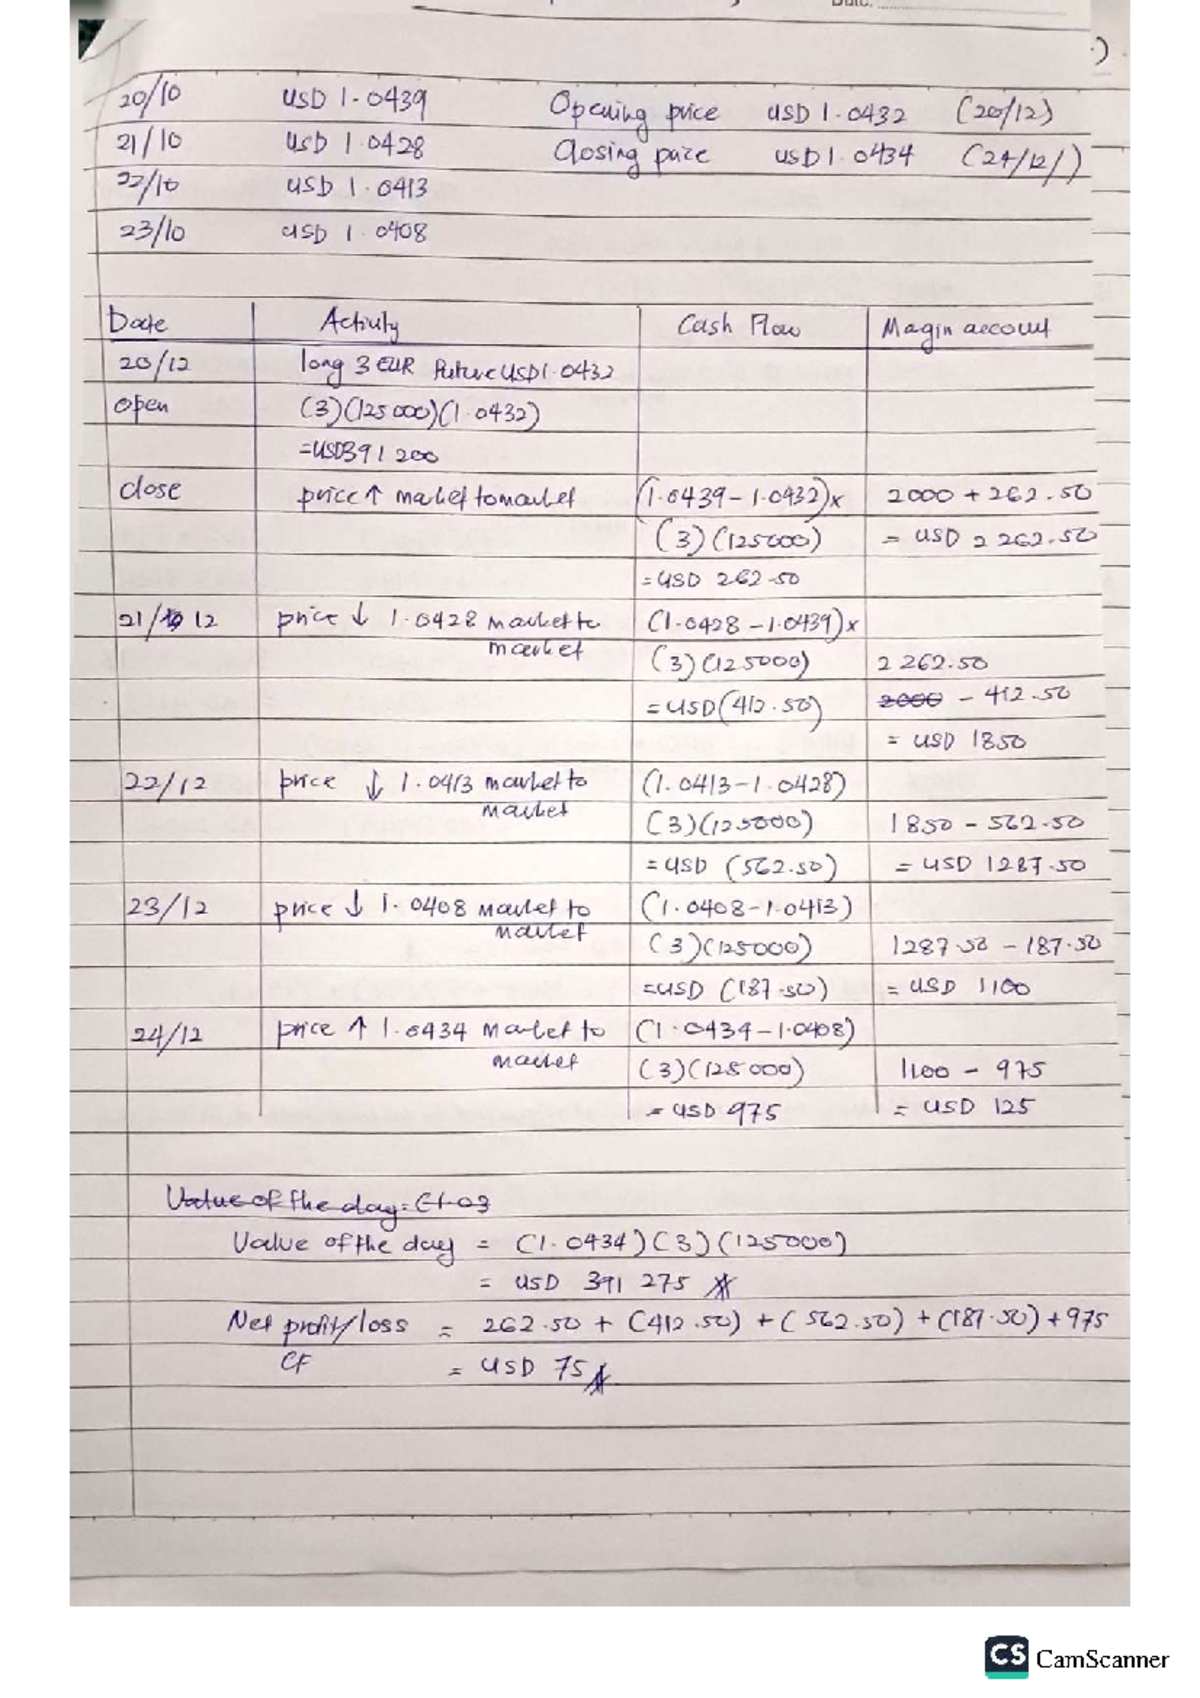 Date:
)
20/10 USD 1.0439 Opening price USD 1.0432 (20/12)
21/10 USD 1.0428 Closing price USD 1.0434 (24/12/)
22/10 USD 1.0413
23/10 USD 1.0408
Date Activity Cash Flow Magin account
20/12 long 3 EUR Future USD1.0432
open (3)(125000)(1.0432)
=USD391 200
close price ↑ market to market (1.0439-1.0432)x 2000 + 262.50
(3)(125000) = USD 2262.50
=USD 262.50
21/10 12 price ↓ 1.0428 market to (1.0428-1.0439)x
market (3)(125000) 2262.50
=USD(412.50) 2000 - 412.50
= USD 1850
22/12 price ↓ 1.0413 market to (1.0413-1.0428)
market (3)(125000) 1850 - 562.50
=USD (562.50) = USD 1287.50
23/12 price ↓ 1.0408 market to (1.0408-1.0413)
market (3)(125000) 1287.50 - 187.50
=USD (187.50) = USD 1100
24/12 price ↑ 1.0434 market to (1.0434-1.0408)
market (3)(125000) 1100 - 975
= USD 975 = USD 125
Value of the day = (1.03
Value of the day = (1.0434)(3)(125000)
= USD 391 275
Net profit/loss = 262.50 + (412.50) + (562.50) + (187.50) + 975
CF = USD 75
CS CamScanner